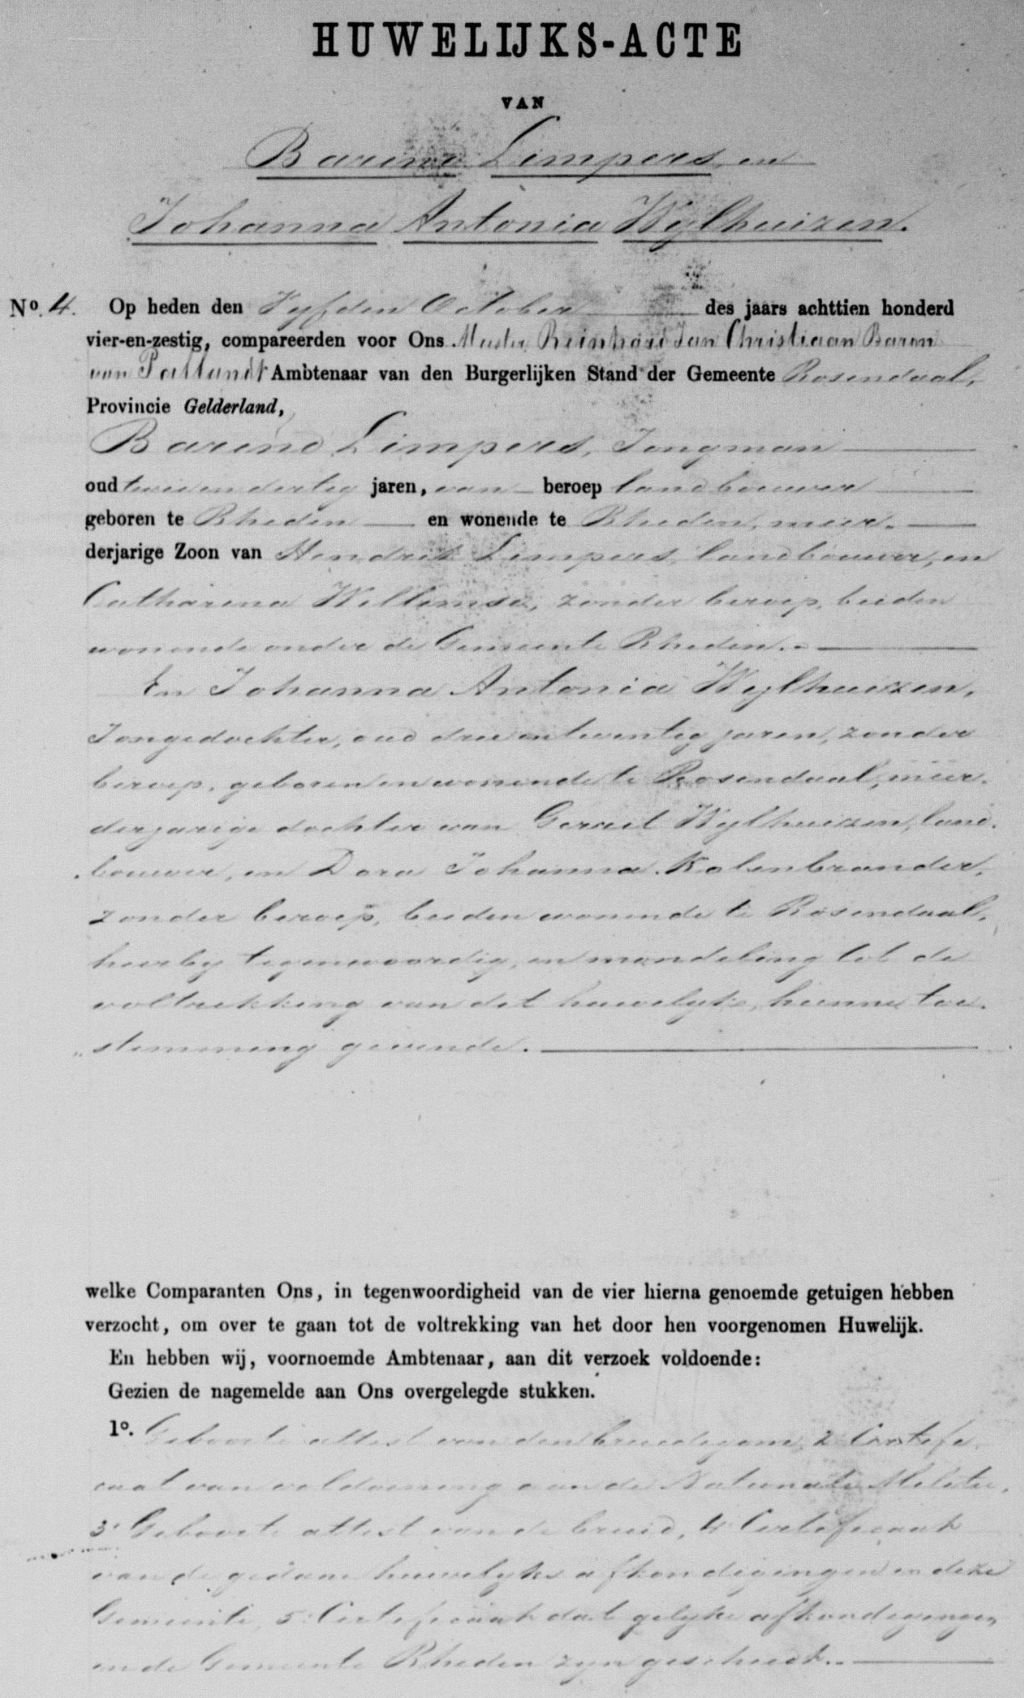 HUWELIJKS-ACTE
VAN
Barend Limpers en
Johanna Antonia Wylhuizen.
No. 4. Op heden den Vyfden October des jaars achttien honderd
vier-en-zestig, compareerden voor Ons Meester Reinhard Jan Christiaan Baron
van Pallandt Ambtenaar van den Burgerlijken Stand der Gemeente Rosendaal,
Provincie Gelderland,
Barend Limpers, Jongman
oud twee en dertig jaren, van beroep landbouwer
geboren te Rheden en wonende te Rheden, meer-
derjarige Zoon van Hendrik Limpers, landbouwer, en
Catharina Willemsen, zonder beroep, beiden
wonende onder de Gemeente Rheden.
En Johanna Antonia Wylhuizen,
Jongedochter, oud drie en twentig jaren, zonder
beroep, geboren en wonende te Rosendaal, meer-
derjarige dochter van Gerrit Wylhuizen, land-
bouwer, en Dora Johanna Kolenbrander,
zonder beroep, beiden wonende te Rosendaal,
hierby tegenwoordig, en mondeling tot de
voltrekking van dit huwelyk, hunne toe-
stemming gevende.
welke Comparanten Ons, in tegenwoordigheid van de vier hierna genoemde getuigen hebben
verzocht, om over te gaan tot de voltrekking van het door hen voorgenomen Huwelijk.
En hebben wij, voornoemde Ambtenaar, aan dit verzoek voldoende:
Gezien de nagemelde aan Ons overgelegde stukken.
1o. Geboorte attest van den bruidegom, 2 Certifi-
caat van voldoening aan de Nationale Militie,
3. Geboorte attest van de bruid, 4 Certificaat
van de gedane huwelyks afkondigingen in deze
Gemeente, 5. Certificaat dat gelyke afkondigingen
in de Gemeente Rheden zyn geschied.